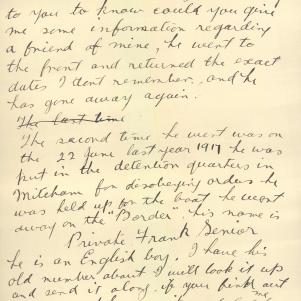 to you to know could you give
me some information regarding
a friend of mine, he went to
the front and returned the exact
dates I dont remember, and he
has gone away again.
The last time
The second time he went was on
the 22 June last year 1917 he was
put in the detention quarters in
Mitcham for desobeying orders he
was held up for the boat he went
away on the "Border" his name is
Private Frank Senior
he is an English boy. I have his
old number about I will look it up
and send it along. if you find out